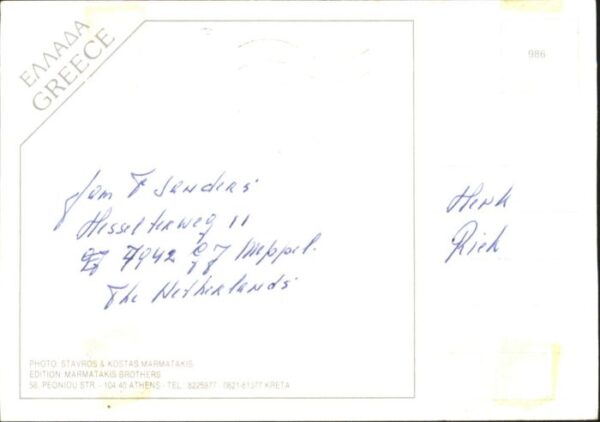 ΕΛΛΑΔΑ
GREECE
986
Jam F Sanders
Hesselterweg 11
7942 GJ Meppel.
The Netherlands
Henk
Riek
PHOTO: STAVROS & KOSTAS MARMATAKIS
EDITION: MARMATAKIS BROTHERS
58, PEONIOU STR. - 104 40 ATHENS - TEL.: 8225977 - 0821-61377 KRETA